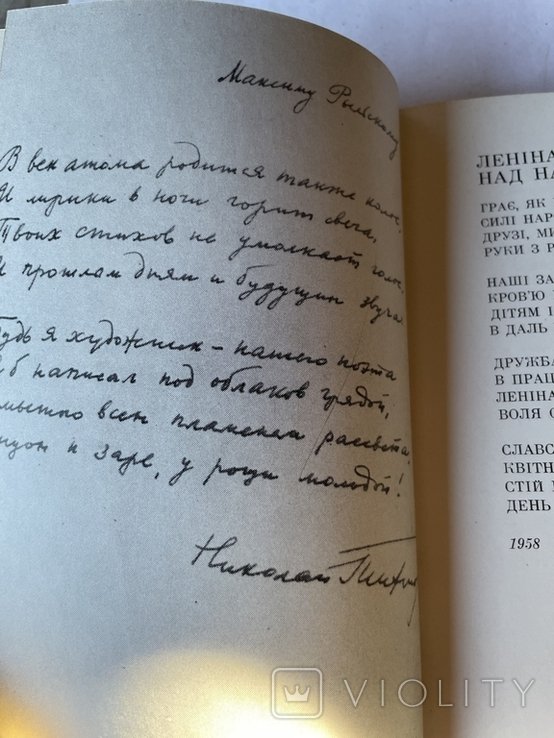 Максиму Рыльскому
В век атома родится также колос,
И лирики в ночи горит свеча,
Твоих стихов не умолкает голос,
И прошлым дням и будущим звуча.
Будь я художник – нашего поэта
б написал под облаков грядой,
всем пламенем рассвета,
к заре, у рощи молодой!
Николай Тихонов
ЛЕНІНА
НАД НА
ГРАЄ, ЯК
СИЛІ НАР
ДРУЗІ, МИ
РУКИ З Р
НАШІ ЗА
КРОВ'Ю
ДІТЯМ І
В ДАЛЬ
ДРУЖБА
В ПРАЦ
ЛЕНІНА
ВОЛЯ С
СЛАВС
КВІТН
СТІЙ
ДЕНЬ
1958
VIOLITY